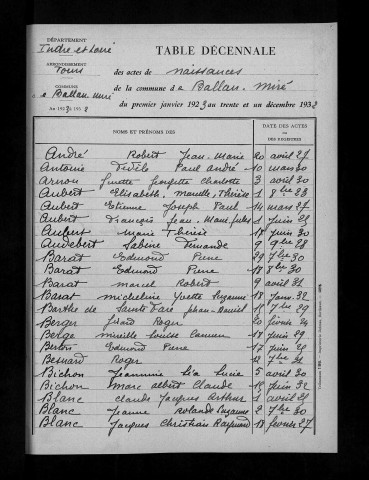 DÉPARTEMENT
Indre et Loire
ARRONDISSEMENT
Tours
COMMUNE
de Ballan Miré
TABLE DÉCENNALE
des actes de naissances
de la commune d e Ballan-Miré
du premier janvier 1923 au trente et un décembre 1932
NOMS ET PRÉNOMS DES
DATE DES ACTES
OU
DES REGISTRES
André Robert Jean-Marie 20 avril 27
Antoine Paul André 10 mars 30
Arnon Ginette Georgette Charlotte 3 avril 30
Aubert Elisabeth Marcelle Thérèse 1 8bre 28
Aubert Etienne Joseph Paul 14 mars 27
Aubert François Jean 1 juin 25
Aubert Marie Thérèse 18 juin 30
Audebert Sabine Fernande 9 9bre 28
Barat Edmond Pierre 29 7bre 30
Barat Edmond Pierre 18 8bre 30
Barat Marcel Robert 9 avril 31
Barat Micheline Yvette Suzanne 18 Janv. 32
Barthe de Sainte Fare Jehan Daniel 18 7bre 29
Berger Gérard Roger 20 février 24
Berge Mireille Louise 18 juin 29
Berton Edmond Pierre 17 juin 29
Besnard Roger 12 7bre 31
Bichon Jeannine Lucie 5 avril 30
Bichon Marc Albert Claude 18 juin 32
Blanc Claude Jacques Arthur 1 avril 25
Blanc Jeanne Rolande Suzanne 2 7bre 30
Blanc Jacques Christian Raymond 18 février 27